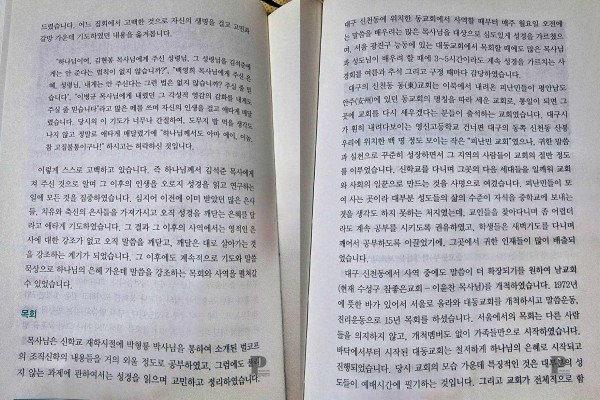 드렸습니다. 어느 집회에서 고백한 것으로 자신의 생명을 걸고 고민과
갈망 가운데 기도하였던 내용을 옮겨봅니다.
"하나님이여, 김현봉 목사님에게 주신 성령님, 그 성령님을 김석준에
게는 안 준다는 법칙이 없지 않습니까?", "백영희 목사님에게 주신 은
혜, 성령님, 내게는 안 주신다는 그런 법은 없지 않습니까? 주실 줄 믿
습니다", "이병규 목사님에게 내렸던 그 각성적 영감의 감화를 내게도
주실 줄 믿습니다"라고 많은 떼를 쓰며 자신의 인생을 걸고 애타게 매달
렸습니다. 당시의 이 기도가 너무나 간절하여, 도무지 밥 먹을 생각도
나지 않고 정말로 애타게 매달렸기에 "하나님께서도 아마 에이, 이놈,
참 고집불통이구나!" 하시고는 허락하신 것입니다.
이렇게 스스로 고백하고 있습니다. 즉 하나님께서 김석준 목사에게
져 주신 것으로 알며 그 이후의 인생을 오로지 성경을 읽고 연구하는
일에 모든 것을 집중하였습니다. 심지어 이전에 이미 받았던 많은 은사
들, 치유와 축신의 은사들을 가져가시고 오직 성경을 깨닫는 은혜를 달
라고 애타게 기도하였습니다. 그 결과 그 이후의 사역에서는 영적인 은
사에 대한 강조가 없고 오직 말씀을 깨닫고, 깨달은 대로 살아가는 것
을 강조하는 계기가 되었습니다. 그 이후에도 계속적으로 기도와 말씀
묵상으로 하나님의 은혜 가운데 말씀을 강조하는 목회와 사역을 펼쳐갈
수 있었습니다.
목회
목사님은 신학교 재학시절에 박형룡 박사님을 통하여 소개된 벌코프
의 조직신학의 내용들을 거의 외울 정도로 공부하였고, 그럼에도
지 않는 과제에 관하여서는 성경을 읽으며 고민하고 정리하였습니다.
대구 신천동에 위치한 동교회에서 사역할 때부터 매주 월요일 오전에
는 말씀을 배우려는 많은 목사님을 대상으로 심도있게 성경을 가르쳤으
며, 서울 광진구 능동에 있는 대동교회에서 목회할 때에도 많은 목사님
과 성도님이 배우려 할 때에 3~5시간이라도 계속 성경을 가르치는 사
경회를 여름과 추석 그리고 구정 때마다 감당하였습니다.
대구 신천동의 동(東)교회는 이북에서 내려온 피난민들이 평안남도
안주(安州)에 있던 동교회의 명칭을 따라 세운 교회로, 통일이 되면 그
곳에 교회를 다시 세우겠다는 분들이 출석하는 교회였습니다. 대구시
가 훤히 내려다보이는 영신고등학교 건너편 대구의 동쪽 신천동 산봉
우리에 위치한 백 명 정도 모이는 "피난민 교회"였으나, 귀한 말씀
과 실천으로 꾸준히 성장하면서 그 지역의 사람들이 교회의 절반 정도
를 이루었습니다. 신학교를 다니며 그곳의 다음 세대들을 일깨워 교회
와 사회의 일꾼으로 만드는 것을 사명으로 여겼습니다. 피난민들이 모
여 사는 곳이라 대부분 성도들의 삶의 수준이 자식을 중학교에 보내는
것을 생각도 하지 못하는 처지였는데, 교인들을 찾아다니며 좀 어렵더
라도 계속 공부를 시키도록 권유하였고, 학생들은 새벽기도를 다니며
깨어서 공부하도록 이끌었기에, 그곳에서 귀한 인재들이 많이 배출되
었습니다.
대구 신천동에서 사역 중에도 말씀이 더 확장되기를 원하여 남교회
(현재 수성구 참좋은교회 – 이윤찬 목사님)를 개척하였습니다. 1972년
에 뜻한 바가 있어서 서울로 올라와 대동교회를 개척하시고 말씀운동,
진리운동으로 15년 목회를 하셨습니다. 서울에서의 목회는 다른 사람
들을 의지하지 않고, 개척멤버도 없이 가족들만으로 시작하였습니다.
바닥에서부터 시작된 대동교회는 전적하게 하나님의 은혜로 시작되고
진행되었습니다. 당시 교회의 모습 가운데 특징적인 것은 대부분의 성
도들이 예배시간에 필기하는 것입니다. 그리고 교회가 전체적으로 함